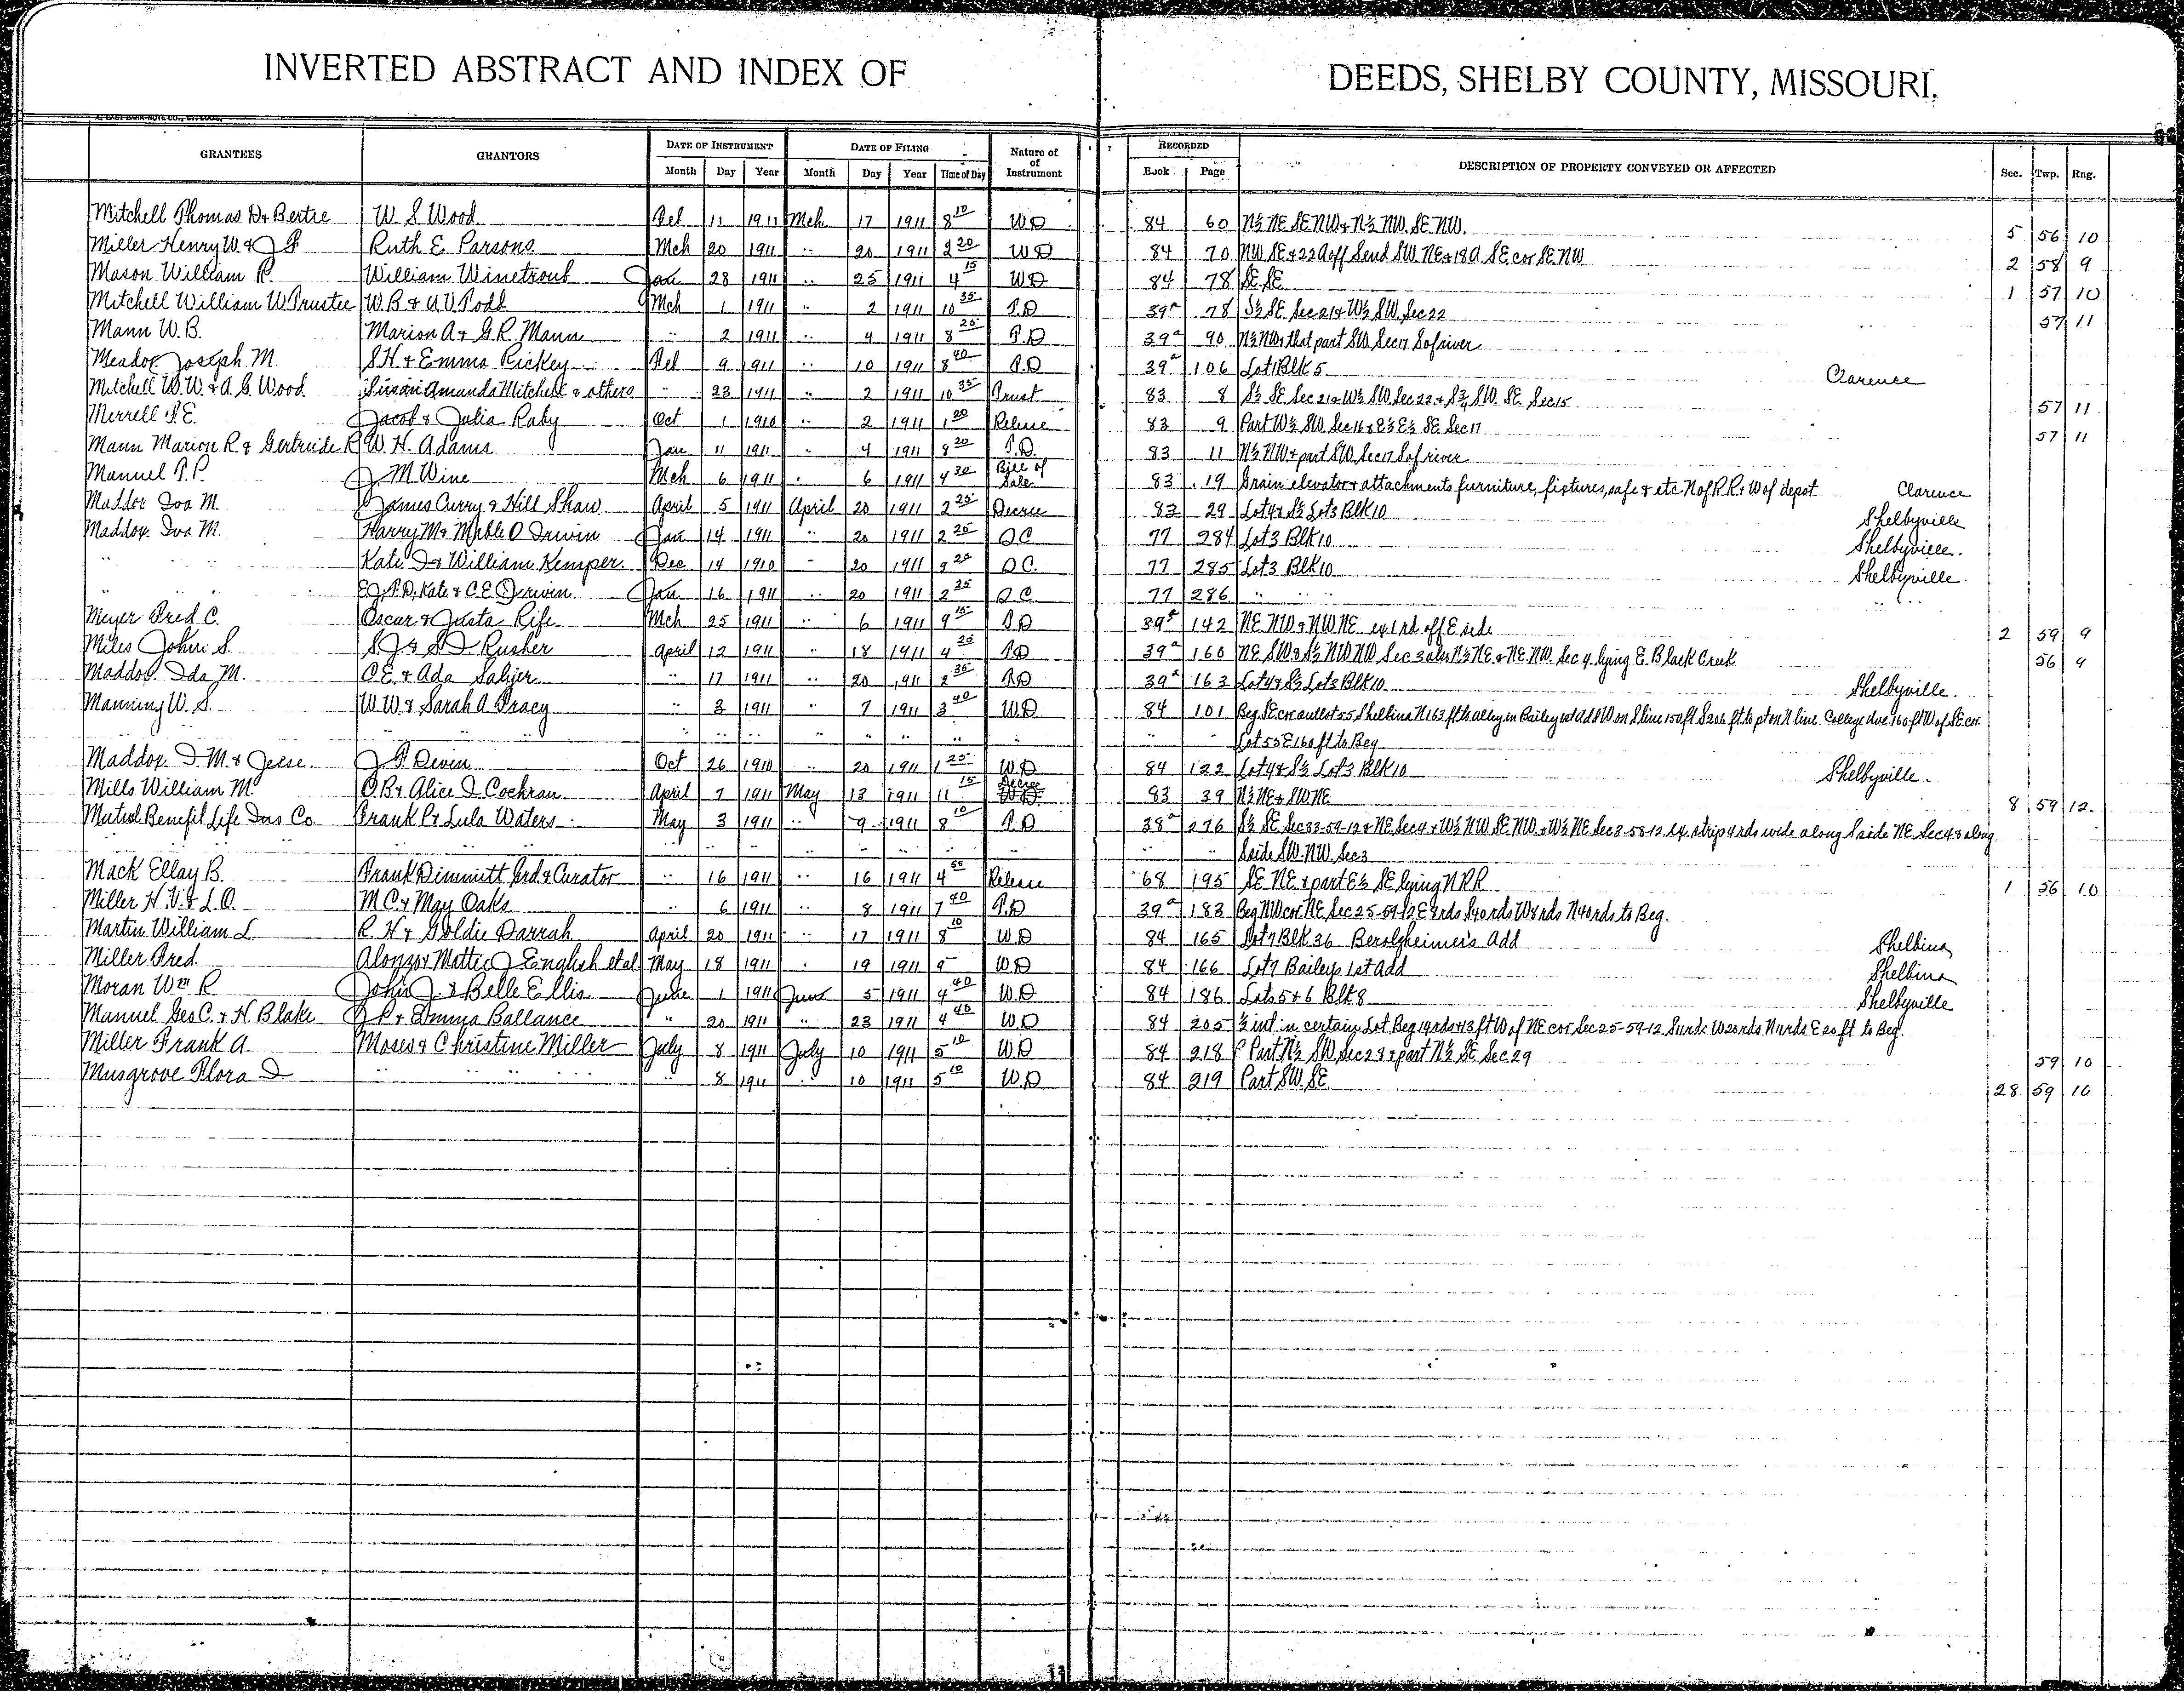 INVERTED ABSTRACT AND INDEX OF DEEDS, SHELBY COUNTY, MISSOURI.
GRANTEES GRANTORS DATE OF INSTRUMENT DATE OF FILING Nature of of Instrument RECORDED DESCRIPTION OF PROPERTY CONVEYED OR AFFECTED Sec. Twp. Rng.
Month Day Year Month Day Year Time of Day Book Page
Mitchell Thomas D & Bertie W. S Wood Feb 11 1911 Mch 17 1911 8 10 WD 84 60 N½ NE SE NW & N½ NW. SE NW. 5 56 10
Miller Henry W. & J F Ruth E Parsons Mch 20 1911 " 20 1911 2 20 WD 84 70 NW SE & 22A off S end SW. NE & 18 A SE cor SE NW 2 58 9
Mason William R. William Winetroub Jan 28 1911 " 25 1911 4 15 WD 84 78 SE SE 1 57 10
Mitchell William W Trustee W. B & A V Todd Mch 1 1911 " 2 1911 10 35 T.D 39a 78 S½ SE Sec 21 & W½ SW. Sec 22 57 11
Mann W. B. Marion A & G. R Mann " 2 1911 " 4 1911 8 25 T.D 39a 90 N½ NW & that part SW Sec 17 S of river
Meador Joseph M. S H & Emma Rickey Feb 9 1911 " 10 1911 8 40 T.D 39a 106 Lot 1 Blk 5 Clarence
Mitchell W. W. & A. G. Wood Susan Amanda Mitchell & others " 23 1911 " 2 1911 10 35 Trust 83 8 S½ SE Sec 21 & W½ SW Sec 22 & S¾ SW. SE. Sec 15 57 11
Merrell T. E. Jacob & Julia Raby Oct 1 1910 " 2 1911 1 20 Release 83 9 Part W½ SW. Sec 16 & E½ E½ SE Sec 17 57 11
Mann Marion R. & Gertrude R W. H. Adams Jan 11 1911 " 4 1911 8 20 T.D. 83 11 N½ NW & part SW. Sec 17 S of river
Manuel T. P. J. M Wine Mch 6 1911 " 6 1911 4 30 Bill of Sale 83 19 Grain elevator & attachments furniture, fixtures, safe & etc. N of R.R. & W of depot. Clarence
Maddox Iva M. James Curry & Hill Shaw April 5 1911 April 20 1911 2 25 Decree 83 29 Lot 4 & S½ Lot 3 Blk 10 Shelbyville
Maddox Iva M. Harry M & Mable O Irwin Jan 14 1911 " 20 1911 2 25 Q C 77 284 Lot 3 Blk 10 Shelbyville.
" " Kate I & William Kemper. Dec 14 1910 " 20 1911 2 25 Q.C. 77 285 Lot 3 Blk 10 Shelbyville.
" " E J, P. D, Kate & C. E Irwin Jan 16 1911 " 20 1911 2 25 Q.C. 77 286 " " " "
Meyer Fred C. Oscar & Justa Rife Mch 25 1911 " 6 1911 9 15 T.D 39a 142 NE. NW & NW NE ex 1 rd off E side 2 59 9
Miles John S. S J & S D Rusher April 12 1911 " 18 1911 4 25 T.D 39a 160 NE SW & S½ NW NW Sec 3 also N½ NE & NE NW. Sec 4 lying E. Black Creek 56 9
Maddox Ida M. C E. & Ada Salyer " 17 1911 " 20 1911 2 35 T.D 39a 163 Lot 4 & S½ Lot 3 Blk 10 Shelbyville.
Manning W. S. W W & Sarah A Tracy " 3 1911 " 7 1911 3 40 W.D 84 101 Beg. SE cor outlot 55 Shelbina N 163 ft to alley in Bailey 1st Add W on S line 150 ft S 206 ft to pt on N line College ave. 160 ft W of SE cor.
" " " " " " " " " " " " Lot 55 E 160 ft to Beg
Maddox I. M. & Jesse. J F Irvin Oct 26 1910 " 20 1911 1 25 W D 84 122 Lot 4 & S½ Lot 3 Blk 10 Shelbyville.
Mills William M. O B & Alice I Cochran April 7 1911 May 13 1911 11 15 Decree 83 39 N½ NE & SW NE 8 59 12.
Mutual Benefit Life Ins Co Frank P & Lula Waters May 3 1911 " 9 1911 8 10 T.D 38a 276 S½ SE Sec 33-59-12 & NE Sec 4 & W½ NW, SE NW & W½ NE Sec 3-58-12 ex. strip 4 rds wide along S side NE Sec 4 & along
" " " " " " " " " " " " S side SW. NW Sec 3
Mack Ellay B. Frank Dimmitt Grd & Curator " 16 1911 " 16 1911 4 50 Release 68 195 SE NE & part E½ SE lying N R R 1 56 10
Miller H. V. & L. O. M C & May Oaks " 6 1911 " 8 1911 7 40 T.D 39a 183 Beg NW cor NE Sec 25-59-12 E 8 rds S 40 rds W 8 rds N 40 rds to Beg.
Martin William L. R. H & Goldie Darrah April 20 1911 " 17 1911 8 10 W D 84 165 Lot 7 Blk 36 Berolzheimer's Add Shelbina
Miller Fred. Alonzo & Mattie J English et al May 18 1911 " 19 1911 9 W D 84 166 Lot 7 Baileys 1st Add Shelbina
Moran Wm R John J. & Belle Ellis June 1 1911 June 5 1911 4 40 W.D 84 186 Lots 5 & 6 Blk 8 Shelbyville
Manuel Geo C. & H. Blake J R & Emma Ballance " 20 1911 " 23 1911 4 40 W.D 84 205 ½ int in certain Lot Beg 19 rds & 13 ft W of NE cor Sec 25-59-12 S 11 rds W 20 rds N 11 rds E 20 ft to Beg.
Miller Frank A. Moses & Christine Miller July 8 1911 July 10 1911 5 10 W D 84 218 Part N½ SW Sec 28 & part N½ SE Sec 29 59 10
Musgrove Flora I " " " " " 8 1911 " 10 1911 5 10 W.D 84 219 Part SW. SE 28 59 10